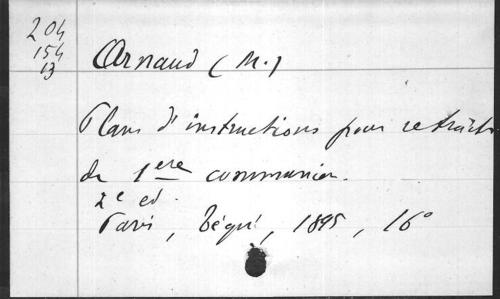 204
154
13
Arnaud (M.)
Plans d'instructions pour retraites
de 1ere communion.
2e ed.
Paris, Téqui, 1895, 16°